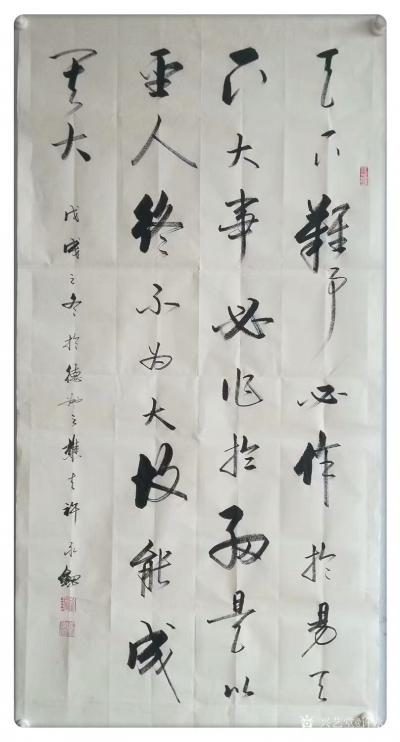 天下難事必作於易天
下大事必作於細是以
聖人終不為大故能成
其大
戊戌之冬於德之樵許永
兴艺堂@